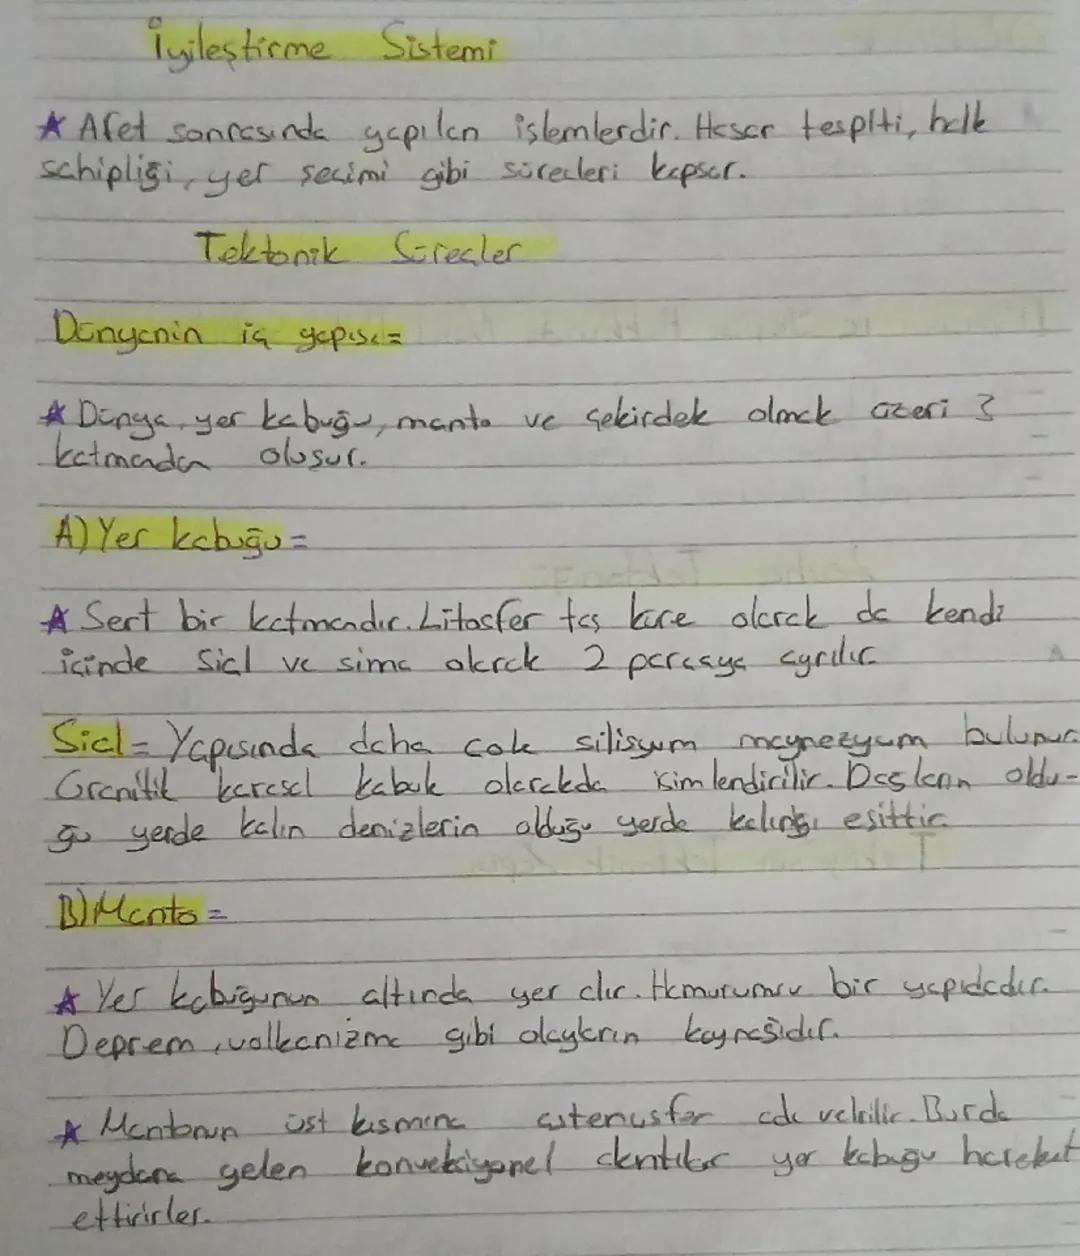 İyileştirme Sistemi
★ Afet sonrasında yapılan işlemlerdir. Hasar tespiti, halk
sahipliği, yer seçimi gibi süreçleri kapsar.
Tektonik Süreçler
Dünyanın iç yapısı=
★ Dünya, yer kabuğu, manto ve çekirdek olmak üzeri 3
katmandan oluşur.
A) Yer kabuğu=
★ Sert bir katmandır. Litosfer taş küre olarak da kendi
içinde Sial ve sima olarak 2 parçaya ayrılır
Sial= Yapısında daha çok silisyum magnezyum bulunur.
Granitik karasal kabuk olarakda isimlendirilir. Dağların oldu-
ğu yerde kalın denizlerin olduğu yerde eşittir.
B) Manto=
★ Yer kabuğunun altında yer alır. Hamurumsu bir yapıdadır.
Deprem, volkanizma gibi olayların kaynağıdır.
★ Mantonun üst kısmına astenosfer adı verilir. Burda
meydana gelen konveksiyonel akıntılar yer kabuğu hareket
ettirirler.